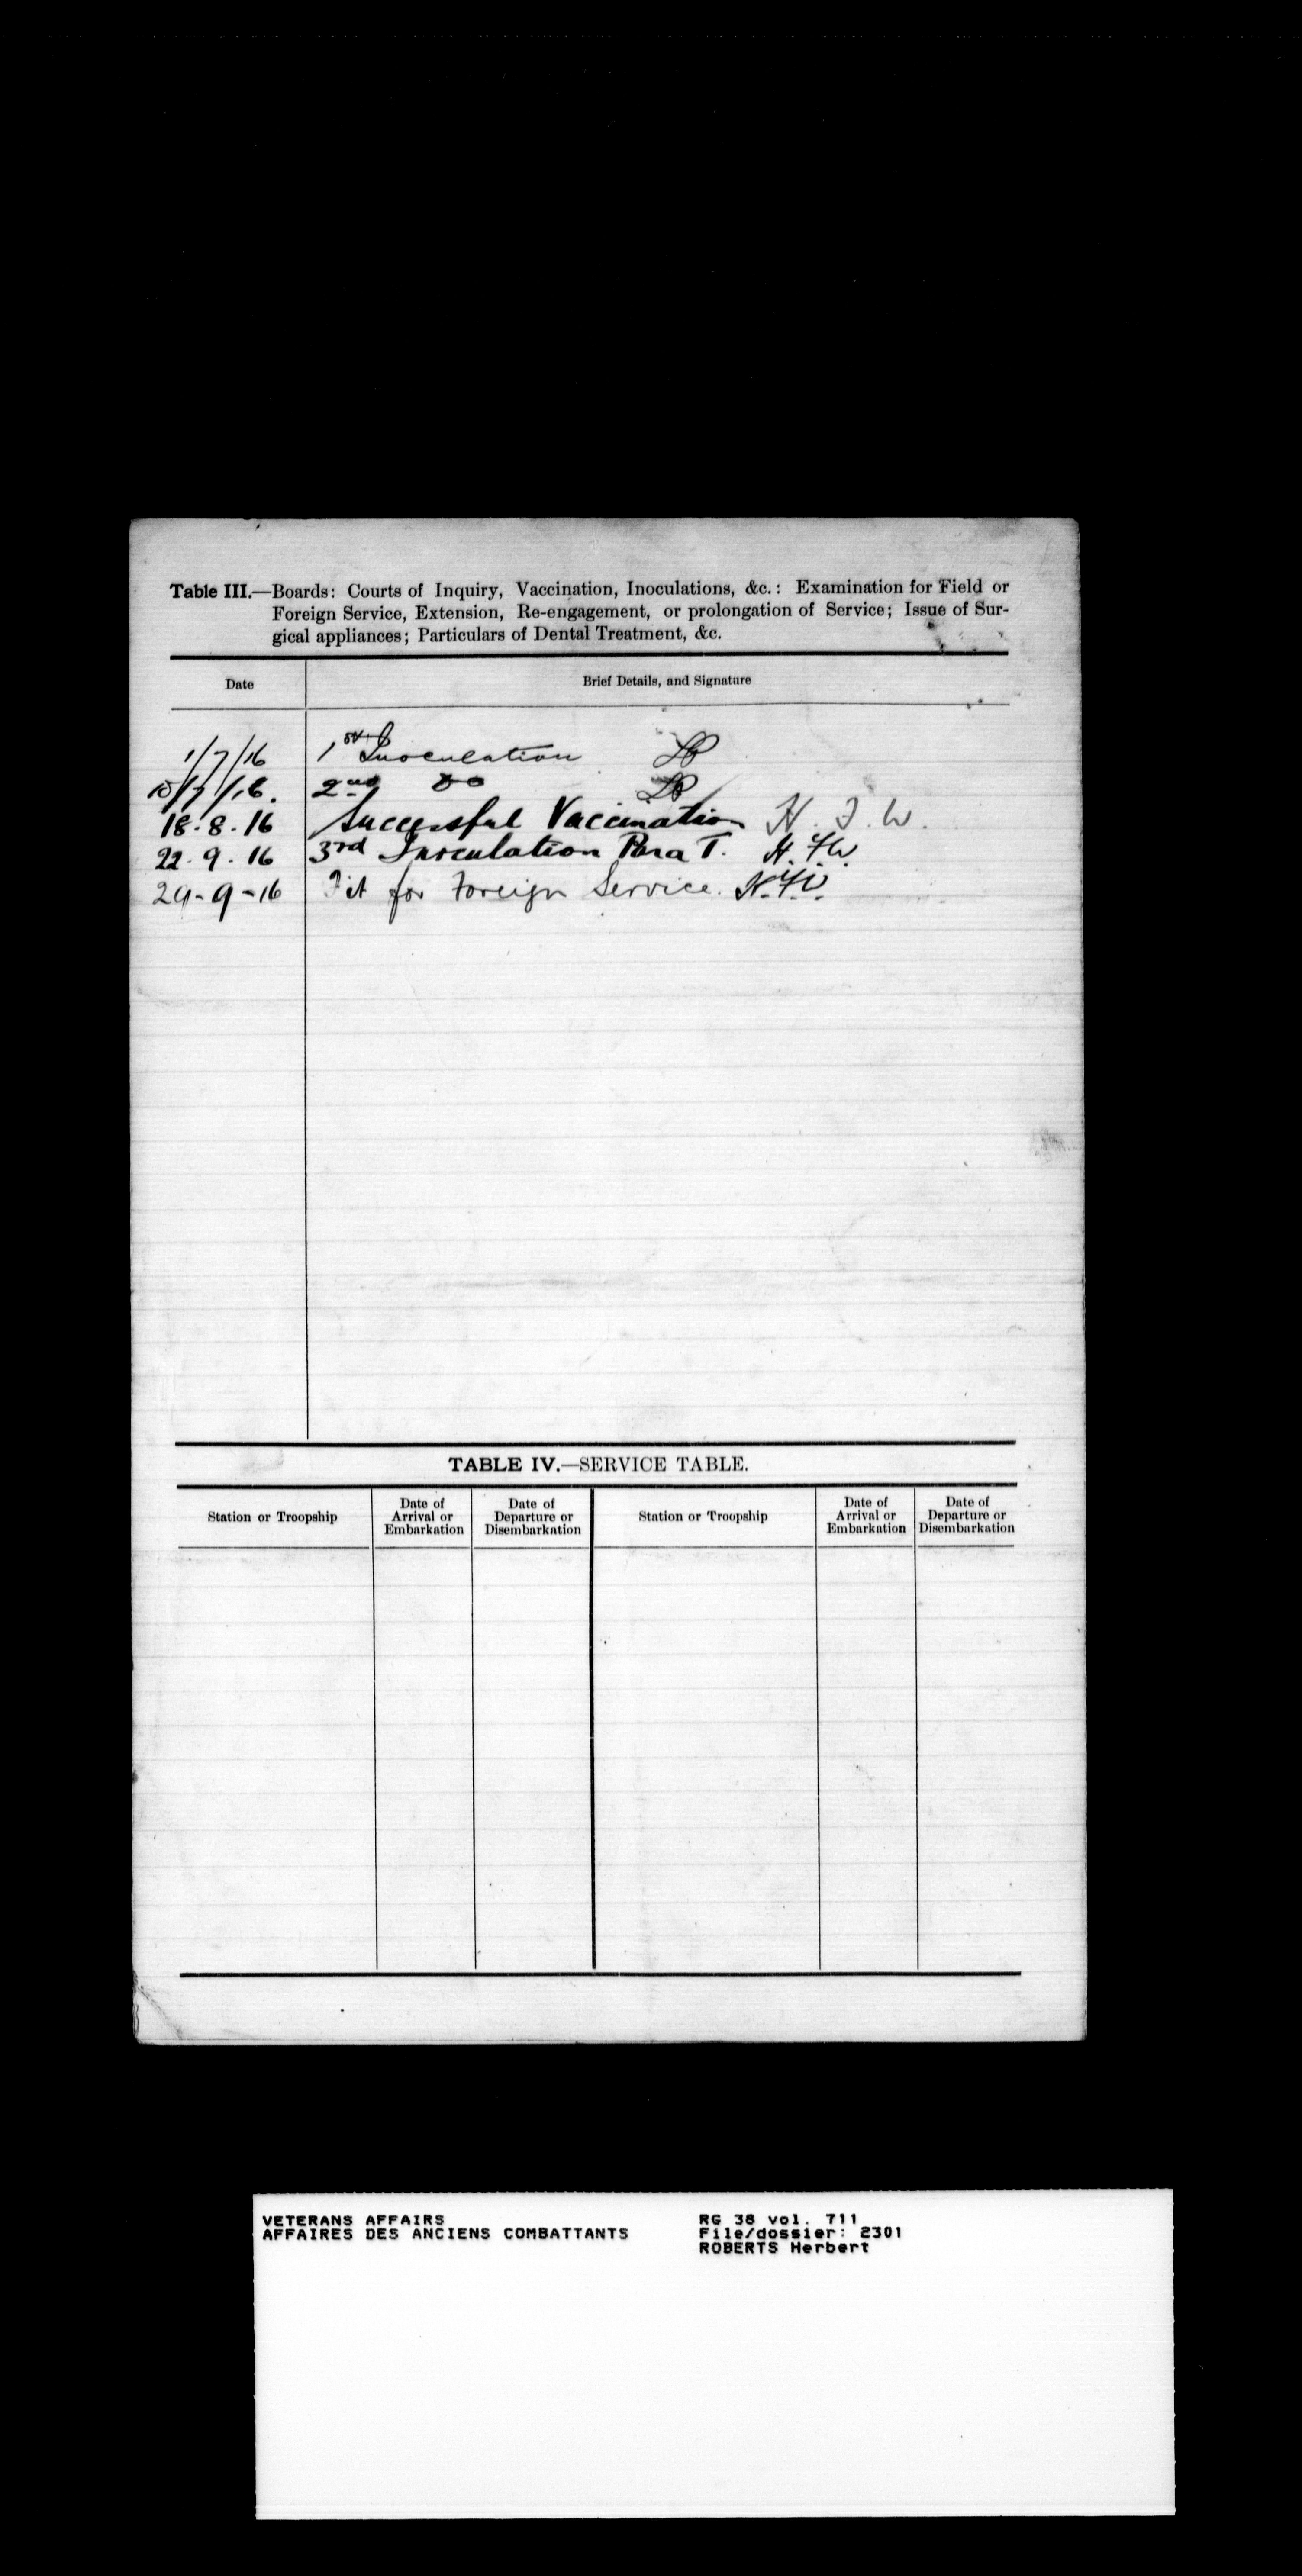 Table III.—Boards: Courts of Inquiry, Vaccination, Inoculations, &c.: Examination for Field or
Foreign Service, Extension, Re-engagement, or prolongation of Service; Issue of Sur-
gical appliances; Particulars of Dental Treatment, &c.
Date Brief Details, and Signature
1/7/16 1st Inoculation
10/7/16. 2nd do
18.8.16 Successful Vaccination H.F.W.
22.9.16 3rd Inoculation Para T. H.F.W.
29-9-16 Fit for Foreign Service. H.F.W.
TABLE IV.—SERVICE TABLE.
Station or Troopship Date of Arrival or Embarkation Date of Departure or Disembarkation Station or Troopship Date of Arrival or Embarkation Date of Departure or Disembarkation
VETERANS AFFAIRS RG 38 vol. 711
AFFAIRES DES ANCIENS COMBATTANTS File/dossier: 2301
ROBERTS Herbert